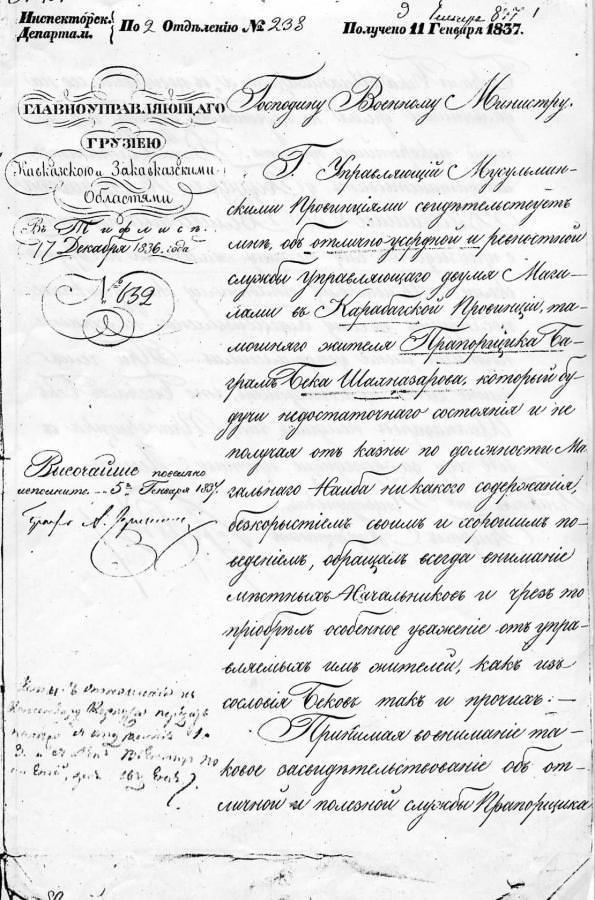 Инспекторск.
Департам.
По 2 Отдѣленію № 238
Получено 11 Генваря 1837.
ГЛАВНОУПРАВЛЯЮЩАГО
ГРУЗІЕЮ
Кавказскою и Закавказскими
Областями
Въ Тифлисѣ.
17 Декабря 1836. года
№ 632
Высочайше повелѣно
исполнить 5го Генваря 1837.
Графъ А.
Господину Военному Министру.
Г. Управляющій Мусульман-
скими Провинціями свидѣтельствуетъ
мнѣ, объ отлично-усердной и ревностной
службѣ управляющаго двумя Мага-
лами въ Карабагской Провинціи, та-
мошняго жителя Прапорщика Ба-
грамъ Бека Шахназарова, который бу-
дучи недостаточнаго состоянія и не
получая отъ казны по должности Ма-
гальнаго Наиба никакого содержанія,
безкорыстіемъ своимъ и хорошимъ по-
веденіемъ, обращалъ всегда вниманіе
мѣстныхъ Начальниковъ и чрезъ то
пріобрѣлъ особенное уваженіе отъ упра-
вляемыхъ имъ жителей, какъ изъ
сословія Бековъ такъ и прочихъ. —
Принимая во вниманіе та-
ковое засвидѣтельствованіе объ от-
личной и полезной службѣ Прапорщика